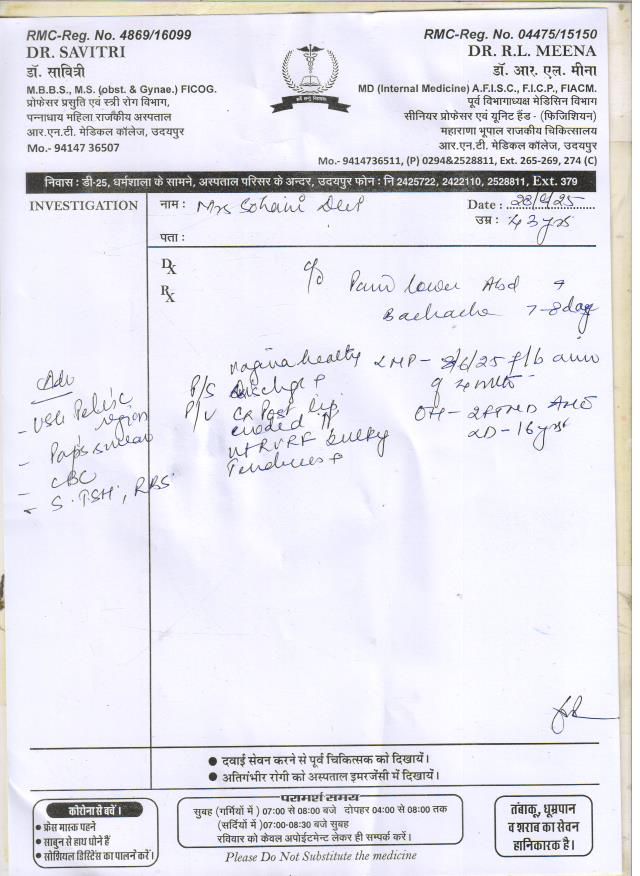 RMC-Reg. No. 4869/16099
DR. SAVITRI
डॉ. सावित्री
M.B.B.S., M.S. (obst. & Gynae.) FICOG.
प्रोफेसर प्रसुति एवं स्त्री रोग विभाग,
पन्नाधाय महिला राजकीय अस्पताल
आर.एन.टी. मेडिकल कॉलेज, उदयपुर
Mo.- 94147 36507
RMC-Reg. No. 04475/15150
DR. R.L. MEENA
डॉ. आर. एल. मीना
MD (Internal Medicine) A.F.I.S.C., F.I.C.P., FIACM.
पूर्व विभागाध्यक्ष मेडिसिन विभाग
सीनियर प्रोफेसर एवं यूनिट हैंड - (फिजिशियन)
महाराणा भूपाल राजकीय चिकित्सालय
आर.एन.टी. मेडिकल कॉलेज, उदयपुर
Mo.- 9414736511, (P) 0294&2528811, Ext. 265-269, 274 (C)
निवास : डी-25, धर्मशाला के सामने, अस्पताल परिसर के अन्दर, उदयपुर फोन : नि 2425722, 2422110, 2528811, Ext. 379
INVESTIGATION
नाम : Mrs Sohani
Date : 28/9/25
उम्र : 43 yrs
पता :
Dx
Rx
c/o Pain lower Abd +
Backache 7-8 day
vagina healthy LMP - 8/6/25 f/b
P/S discharge +
P/V Cx Post lip
eroded
ut RVRF bulky
LD - 16 yrs
Tenderness +
Adv
- USG Pelvic region
- Paps smear
- CBC
- S. TSH, RBS
● दवाई सेवन करने से पूर्व चिकित्सक को दिखायें।
● अतिगंभीर रोगी को अस्पताल इमरजेंसी में दिखायें।
कोरोना से बचें ।
● फ्रेस मास्क पहने
● साबुन से हाथ धोने हैं
● सोशियल डिस्टिंस का पालन करें।
परामर्श समय
सुबह (गर्मियों में ) 07:00 से 08:00 बजे दोपहर 04:00 से 08:00 तक
(सर्दियों में )07:00-08:30 बजे सुबह
रविवार को केवल अपोईटमेन्ट लेकर ही सम्पर्क करें।
Please Do Not Substitute the medicine
तंबाकू, धूम्रपान
व शराब का सेवन
हानिकारक है।